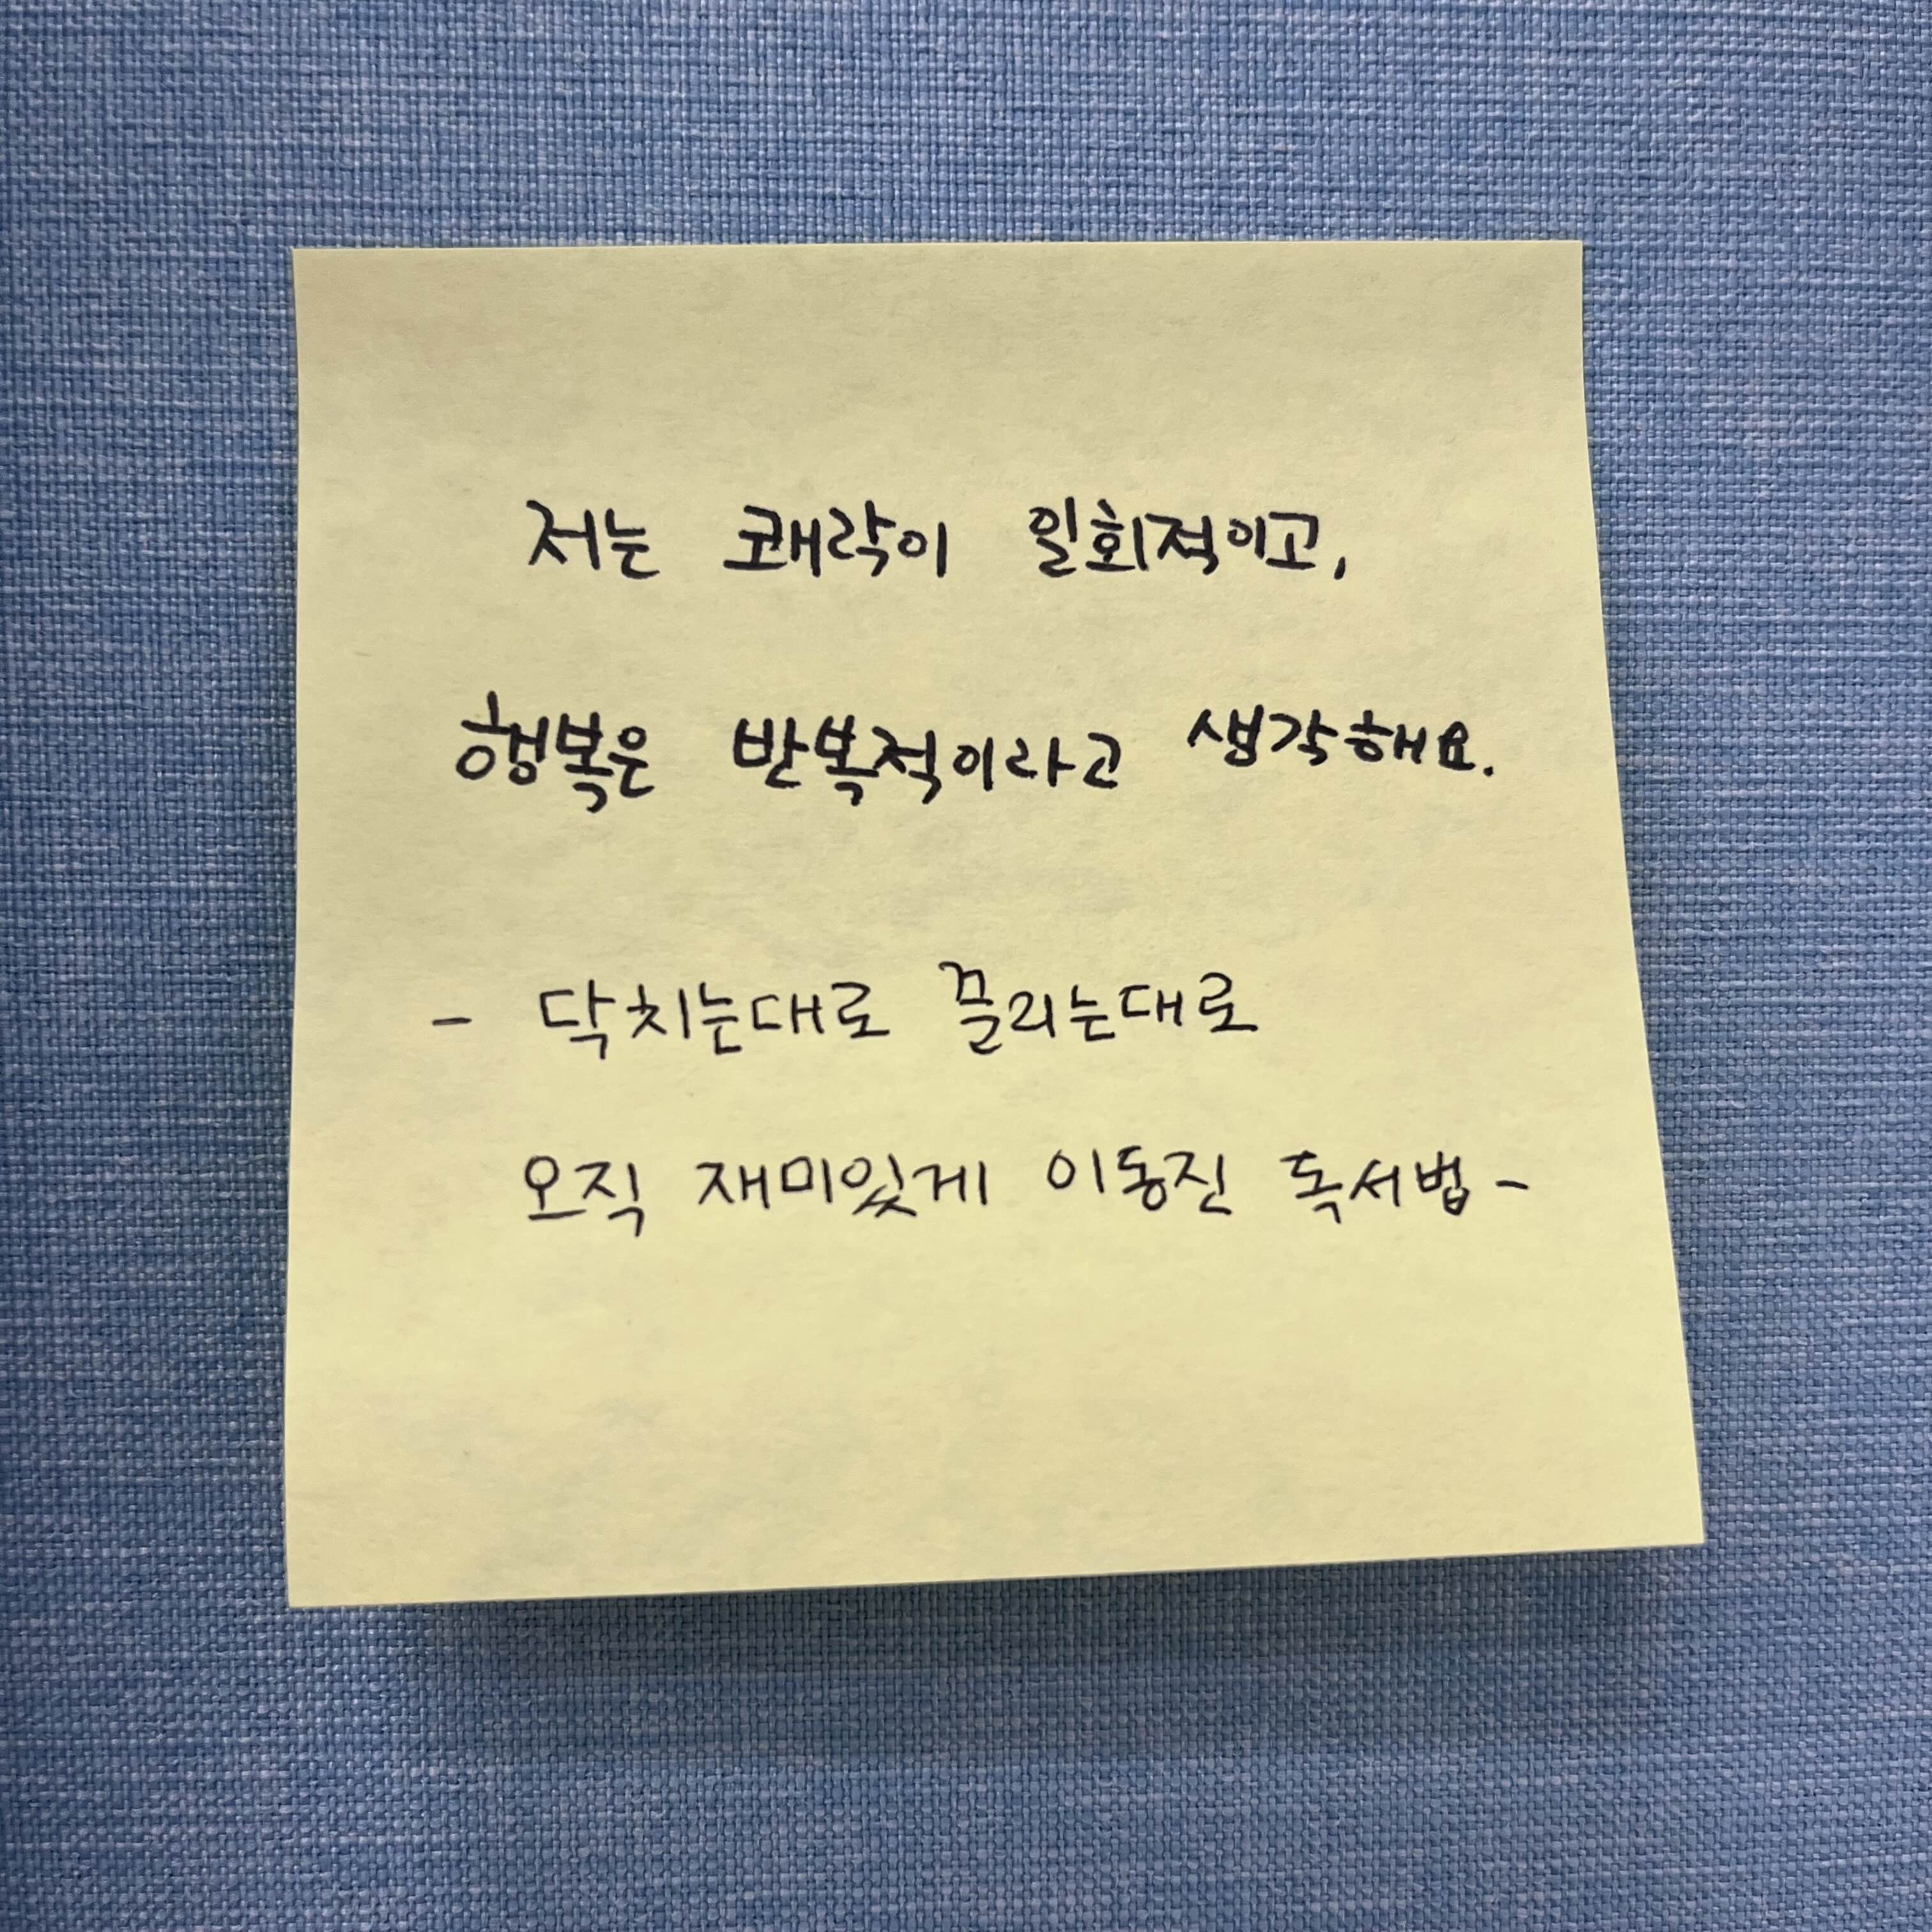 저는 쾌락이 일회적이고,
행복은 반복적이라고 생각해요.
- 닥치는대로 끌리는대로
오직 재미있게 이동진 독서법 -